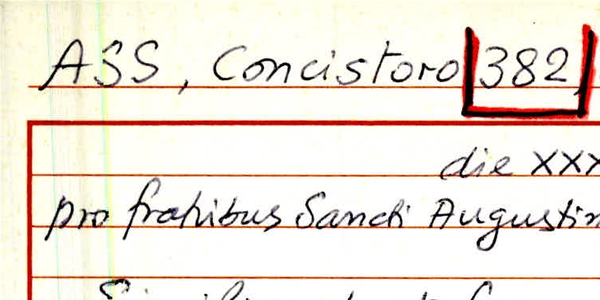 ASS, Concistoro 382,
die XXX
pro fratribus Sancti Augustin